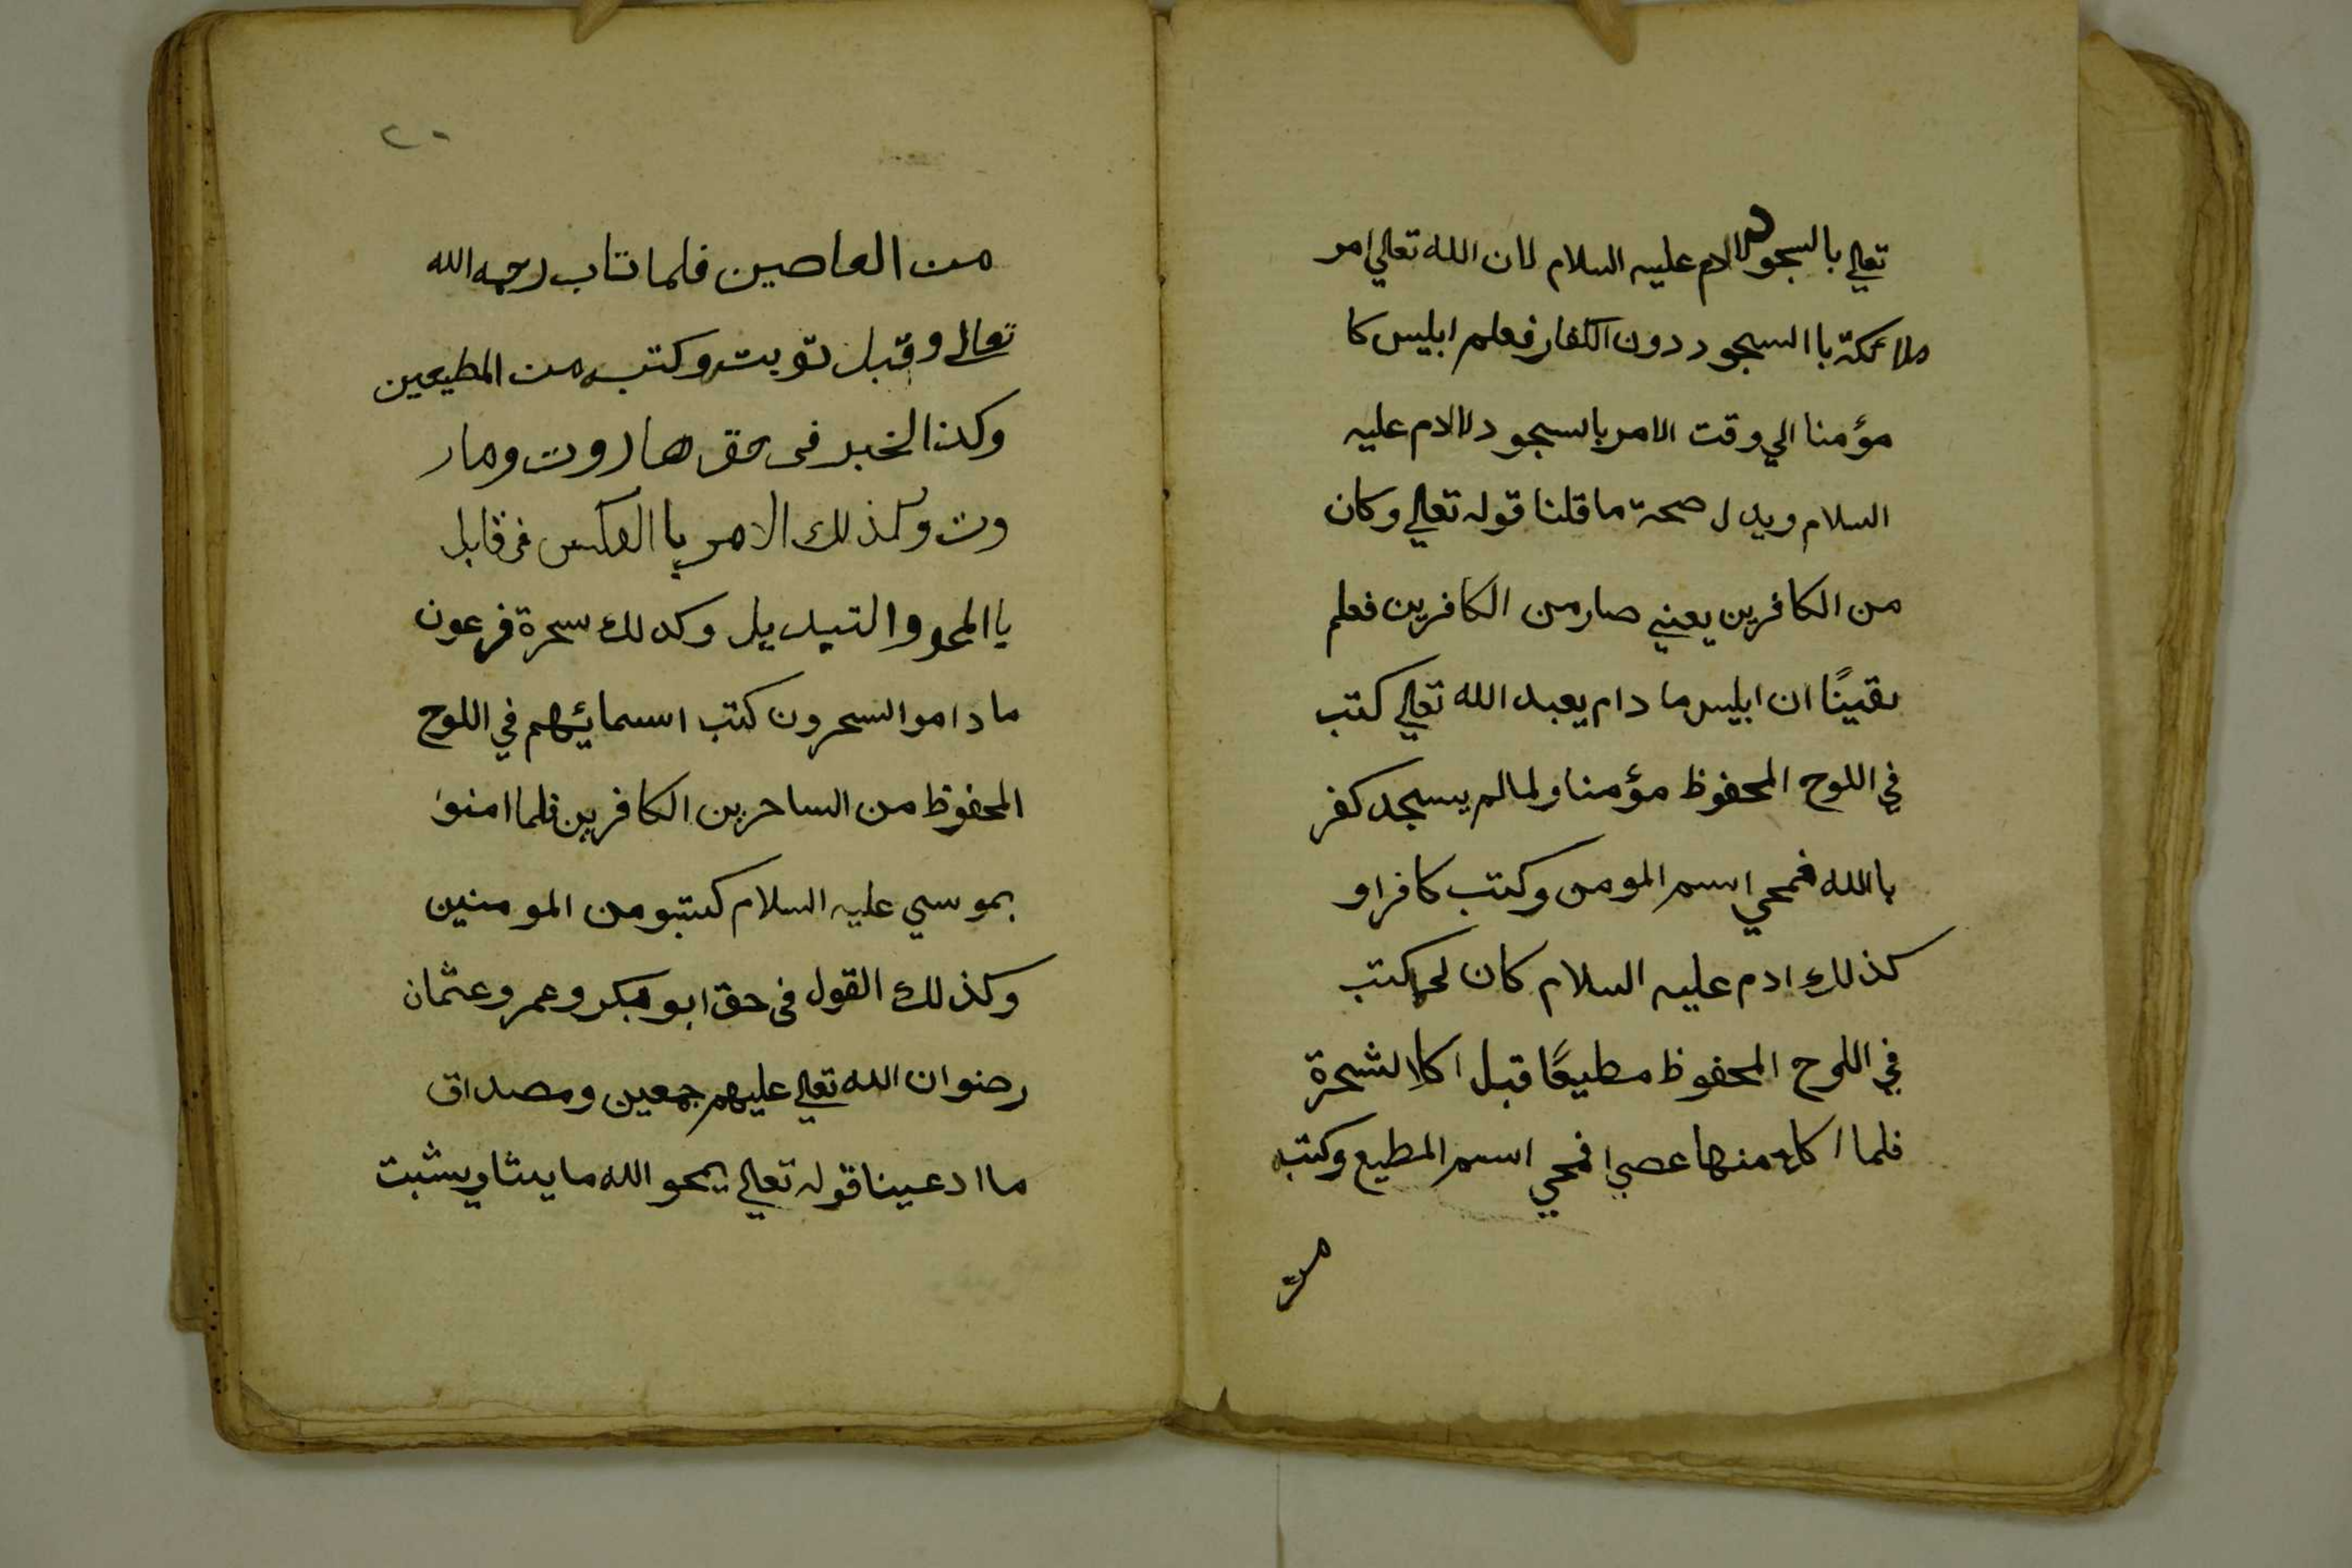 تعالي بالسجود لادم عليه السلام لان الله تعالي امر
ملائكة باالسجود دون الكفار فعلم ابليس كا
مؤمنا الي وقت الامر بالسجود لالادم عليه
السلام ويدل صحة ما قلنا قوله تعالي وكان
من الكافرين يعني صار من الكافرين فعلم
يقينًا ان ابليس ما دام يعبد الله تعالي كتب
في اللوح المحفوظ مؤمنا ولما لم يسجد كفر
باالله فمحي اسم المومن وكتب كافرا و
كذلك ادم عليه السلام كان كتب
في اللوح المحفوظ مطيعًا قبل اكلا لشجرة
فلما اكل منها عصي فمحي اسم المطيع وكتب
من
٢٠
من العاصين فلما تاب رحمه الله
تعالى وقبل توبته وكتب من المطيعين
وكذا الخبر فى حق هاروت ومار
وت وكذلك الامر باالعكس فى قابل
باالمحو والتبديل وكدلك سحرة فرعون
ما داموا السحرون كتب اسمائهم في اللوح
المحفوظ من الساحرين الكافرين فلما امنوا
بموسي عليه السلام كتبو من المومنين
وكذلك القول فى حق ابو بكر وعمر وعثمان
رضوان الله تعالي عليهم جمعين ومصداق
ما ادعينا قوله تعالي يمحو الله ما يشا ويثبت